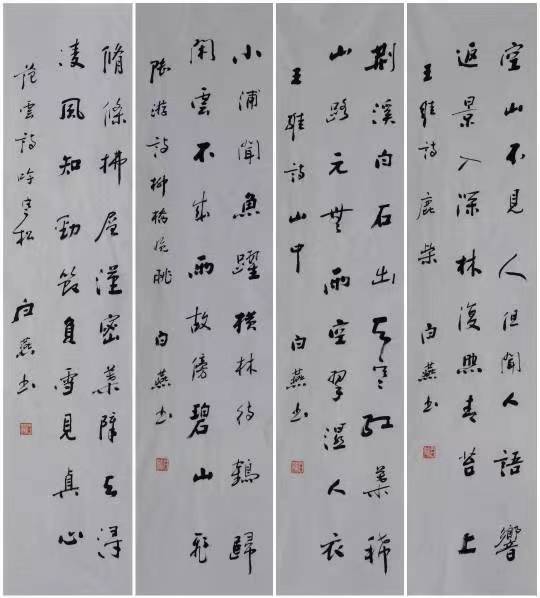 空山不見人但聞人語響
返景入深林復照青苔上
王維詩鹿柴 白燕书
荆溪白石出天寒红葉稀
山路元無雨空翠濕人衣
王維詩山中 白燕书
小浦聞魚躍横林待鶴歸
閑雲不成雨故傍碧山飛
陸游詩柳橋晚眺 白燕书
脩條拂層漢密葉障天潯
凌風知勁節負雪見貞心
范雲詩咏寒松 白燕书